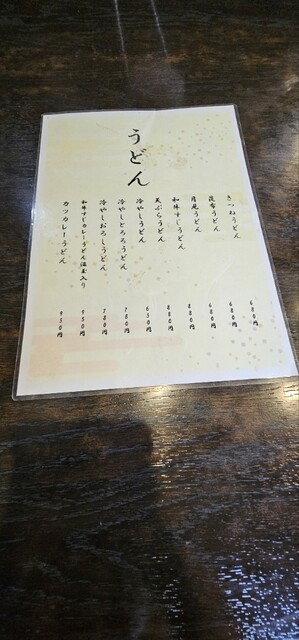 うどん
きつねうどん 680円
昆布うどん 680円
月見うどん 680円
和牛すじうどん 880円
天ぷらうどん 880円
冷やしうどん 630円
冷やしとろろうどん 780円
冷やしおろしうどん 780円
和牛すじカレーうどん温玉入り 950円
カツカレーうどん 950円